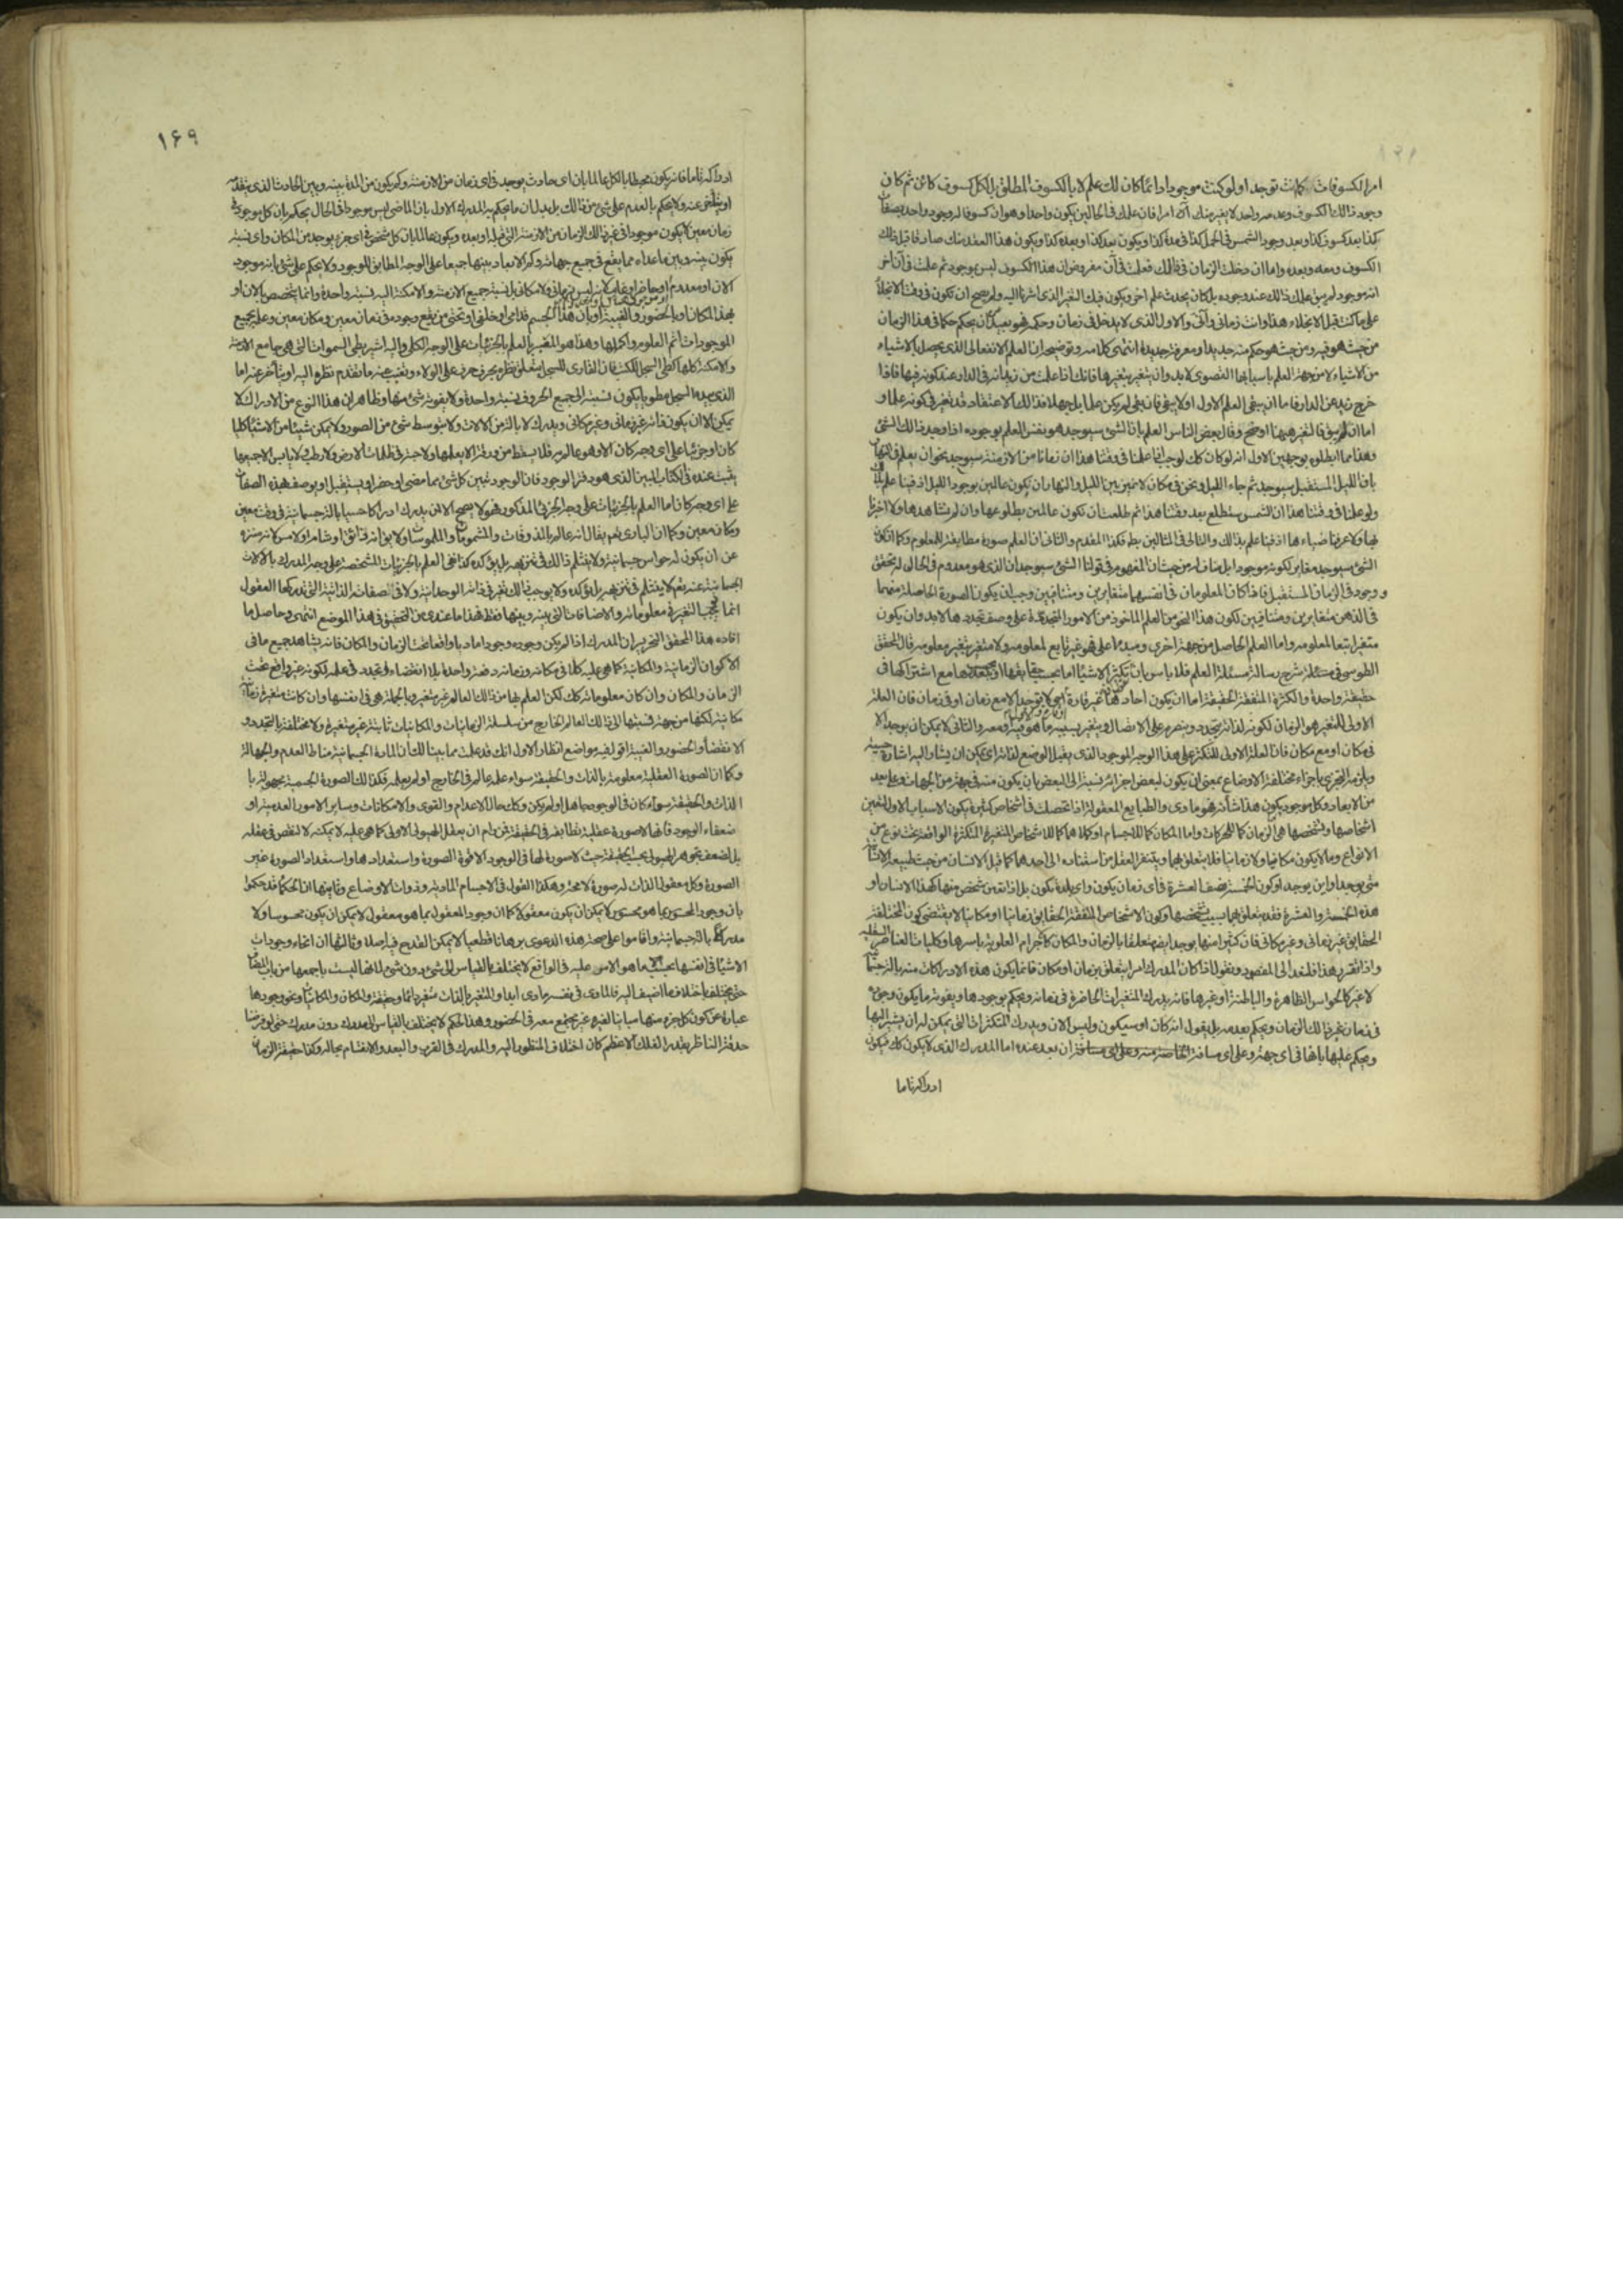 امر الكسوفات كانت توجد او لو كنت موجودا دائما كان لك علم لا بالكسوف المطلق بل لكل كسوف كائن ثم كان
وجود ذلك الكسوف وعدمه واحد لا يغير منك امرا فان علمك فى الحالين يكون واحدا وهو ان كسوفا له وجود واحد بصفات
كذا بعد كسوف كذا وبعد وجود الشمس فى الحمل كذا فى مدة كذا ويكون بعد كذا وبعده كذا ويكون هذا العقد منك صادقا قبل ذلك
الكسوف ومعه وبعده واما ان دخلت الزمان فى ذلك فعلمت فى آن مفروض ان هذا الكسوف ليس بموجود ثم علمت فى آن اخر
انه موجود لم يبق علمك ذلك عند وجوده بل كان يحدث علم اخر ويكون فيك التغير الذى اشرنا اليه ولم يصح ان تكون فى وقت الانجلاء
على ما كنت قبل الانجلاء هذا وانت زمانى وآنى والاول الذى لا يدخل فى زمان وحكمه فهو بعيد ان يحكم حكما فى هذا الزمان
من حيث هو فيه ومن حيث هو حكم منه جديد او معرفة جديدة انتهى كلامه وتوضيحه ان العلم الانفعالى الذى يحصل بالاشياء
من الاشياء لا من جهة العلم باسبابها القصوى لا بد وان يتغير بتغيرها فانك اذا علمت من زيد انه فى الدار عند كونه فيها فاذا
خرج زيد عن الدار فاما ان يبقى العلم الاول او لا يبقى فان بقى لم يكن علما بل جهلا فذلك الاعتقاد قد تغير فى كونه علما و
اما ان لم يبق فالتغير ههنا اوضح وقال بعض الناس العلم بان الشىء سيوجد هو نفس العلم بوجوده اذا وجد ذلك الشىء
وهذا مما ابطلوه بوجهين الاول انه لو كان كك لوجب اذا علمنا فى وقتنا هذا ان زمانا من الازمنة سيوجد نحو ان يعلم فى النهار
بان الليل المستقبل سيوجد ثم جاء الليل ونحن فى مكان لا نميز بين الليل والنهار ان نكون عالمين بوجود الليل
ولو علمنا فى وقتنا هذا ان الشمس ستطلع بعد وقتنا هذا ثم طلعت ان نكون عالمين بطلوعها وان لم نشاهدها ولا اخبرنا
بها ولا عرفنا ضياءها والتالى فى المثالين بط فكذا المقدم والثانى ان العلم صورة مطابقة للمعلوم وكما ان كون
الشىء سيوجد مغاير لكونه موجودا بل مناف له من حيث ان المفهوم فى قولنا الشىء سيوجد ان الذى هو معدوم فى الحال له تحقق
ووجود فى الزمان المستقبل فاذا كان المعلومان فى انفسهما متغايرين ومتنافيين وجب ان يكون الصورة الحاصلة منهما
فى الذهن متغايرين ومتنافيين لكون هذا النحو من العلم الماخوذ من الامور المتجددة على وصف تجددها لا بد وان يكون
متغيرا تبعا لمعلومه واما العلم الحاصل من جهة اخرى ومبدء اعلى فهو غير تابع لمعلومه ولا متغير بتغير معلومه قال المحقق
الطوسى فى شرح رسالة مسئلة العلم فلا باس بان تكثر الاشياء اما بحسب حقايقها او بحسب تعددها مع اشتراكها فى
حقيقة واحدة والكثرة المتفقة الحقيقة اما ان يكون احادها غير قارة اى لا توجد الا مع زمان او فى زمان فان العلة
الاولى للتغير هو الزمان لكونه لذاته يتجدد ويتصرم على الاتصال ويتغير بسببه ما هو فيه او معه والثانى لا يمكن ان يوجد الا
فى مكان او مع مكان فان العلة الاولى للتكثر على هذا الوجه الموجود الذى يقبل الوضع لذاته اى يمكن ان يشار اليه اشارة حسية
ويلزمه التجزى باجزاء مختلفة الاوضاع بمعنى ان يكون لبعض اجزائه نسبة الى البعض بان يكون منه فى جهة من الجهات وعلى بعد
من الابعاد وكل موجود يكون هذا شأنه فهو مادى والطبايع المعقولة اذا تحصلت فى اشخاص كثيرة يكون الاسباب الاول لتعين
اشخاصها وتشخصها هى الزمان كما للحركات واما المكان كما للاجسام او كلاهما كما للاشخاص المتغيرة المتكثرة الواقعة تحت نوع من
الانواع وما لا يكون مكانيا ولا زمانيا فلا يتعلق بهما ويتنفر العقل من اسناده الى احدهما كما قيل الانسان من حيث طبيعة الانسانية
متى يوجد او اين يوجد او كون الخمسة نصف العشرة فى اى زمان يكون واى بلدة يكون بل اذا تعين شخص منها كهذا الانسان او
هذه الخمسة والعشرة فقد يتعلق بهما بسبب تشخصها وكون الاشخاص المتفقة الحقايق زمانيا او مكانيا لا يقتضى كون المختلفة
الحقايق غير زمانى وغير مكانى فان كثيرا منها يوجد ايضا متعلقا بالزمان والمكان كالاجرام العلوية باسرها وكليات العناصر السفلية
واذا تقرر هذا فلنعد الى المقصود ونقول اذا كان المدرك امرا يتعلق بزمان او مكان فانما يكون هذه الادراكات منه بالة جسمانية
لا غير كالحواس الظاهرة والباطنة او غيرها فانه يدرك المتغيرات الحاضرة فى زمانه ويحكم بوجودها ويفوته ما يكون وجوده
فى زمان غير ذلك الزمان ويحكم بعدمه بل يقول انه كان او سيكون وليس الان ويدرك المتكثرات التى يمكن له ان يشير اليها
ويحكم عليها بانها فى اى جهة وعلى اى مسافة ان بعد عنه اما المدرك الذى لا يكون كك فيكون
ادراكه تاما
١۶٩
ادراكه تاما فانه يكون محيطا بالكل عالما بان اى حادث يوجد فى اى زمان من الازمنة وكم يكون من المدة بينه وبين الحادث الذى يتقدمه
او يتاخر عنه ولا يحكم بالعدم على شىء من ذلك بل بدل ان ما يحكم به المدرك الاول بان الماضى ليس موجودا فى الحال يحكم بان كل موجود فى
زمان معين لا يكون موجودا فى غير ذلك الزمان من الازمنة التى قبله او بعده ويكون عالما بان كل شخص فى اى جزء يوجد من المكان واى نسبة
يكون بينه وبين ما عداه مما يقع فى جميع جهاته وكم الابعاد بينها جميعا على الوجه المطابق للوجود ولا يحكم على شىء بانه موجود
الان او معدوم او حاضر او غايب لانه ليس بزمانى ولا مكانى بل نسبة جميع الازمنة والامكنة اليه نسبة واحدة وانما يختص بالان او
بهذا المكان او بالحضور والغيبة او بان هذا الجسم قدامى او خلفى او تحتى من يقع وجوده فى زمان معين ومكان معين وعلمه بجميع
الموجودات اتم العلوم واكملها وهذا هو المفسر بالعلم بالجزئيات على الوجه الكلى واليه اشير بطى السموات التى هى جامع الازمنة
والامكنة كلها كطى السجل للكتب فان القارى للسجل يتعلق نظره بحرف حرف على الولاء ويغيب عنه ما تقدم نظره اليه او يتاخر عنه اما
الذى بيده السجل مطويا يكون نسبته الى جميع الحروف نسبة واحدة ولا يفوته شىء منها وظاهر ان هذا النوع من الادراك لا
يمكن الا ان يكون ذاته غير زمانى وغير مكانى ويدرك لا بالة من الالات ولا بتوسط شىء من الصور ولا يمكن شيئا من الاشياء كليا
كان او جزئيا على اى وجه كان الا وهو عالم به فلا يسقط من ورقة الا يعلمها ولا حبة فى ظلمات الارض ولا رطب ولا يابس الا جميعها
يثبت عنده فى الكتاب المبين الذى هو دفتر الوجود فان الوجود تبين كل شىء مما مضى او حضر او يستقبل او يوصف بهذه الصفات
على اى وجه كان اما العلم بالجزئيات على وجه الجزئى المذكور فهو لا يصح الا لمن يدرك ادراكا حسيا بالة جسمانية فى وقت معين
ومكان معين وكما ان البارى تعم يقال انه عالم بالمذوقات والمشمومات والملموسات ولا يق انه ذائق او شام او لامس لانه منزه
عن ان يكون له حواس جسمانية ولا ينثلم ذلك فى تنزيهه بل يؤكده كذا نفى العلم بالجزئيات المشخصة على وجه المدرك بالالات
الجسمانية عنه تعم لا ينثلم فى تنزيهه بل يؤكده ولا يوجب ذلك تغير فى ذاته الوحدانية ولا فى صفاته الذاتية التى تدركها العقول
انما يجب التغير فى معلوماته والاضافات التى بينه وبينها فقط فهذا ما عندى من التحقيق فى هذا الموضع انتهى وحاصل ما
افاده هذا المحقق النحرير ان المدرك اذا لم يكن وجوده وجودا ماديا واقعا تحت الزمان والمكان فانه يشاهد جميع ما فى
الاكوان الزمانية والمكانية كما هى عليه كلا فى مكانه وزمانه دفعة واحدة بلا انقضاء وتجدد فى علمه لكونه غير واقع تحت
الزمان والمكان وان كان معلوماته كك لكن العلم بها من ذلك العالم غير متغير وبالجملة هى فى انفسها وان كانت متغيرة زمانية
مكانية لكنها من جهة نسبتها الى ذلك العالم الخارج من سلسلة الزمانيات والمكانيات ثابتة غير متغيرة ولا مختلفة بالتجدد و
الانقضاء والحضور والغيبة اقول فيه مواضع انظار الاول انك قد علمت مما بينا لك ان المادة الجسمانية مناط العدم والجهالة
وكما ان الصورة العقلية معلومة بالذات والحقيقة سواء علمه عالم فى الخارج او لم يعلمه فكذلك الصورة الجسمية مجهولة با
الذات والحقيقة سواء كان فى الوجود جاهل او لم يكن وكك حال الاعدام والقوى والامكانات وساير الامور العدمية او
ضعفاء الوجود فانها لا صورة عقلية تطابقه فى الحقيقة فمن رام ان يعقل الهيولى الاولى كما هى عليه لا يمكنه لا لنقص فى عقله
بل لضعف جوهر الهيولى بحسب الحقيقة حيث لا صورة لها فى الوجود الا قوة الصورة واستعدادها واستعداد الصورة غير
الصورة وكل معقول الذات له صورة لا محة وهكذا القول فى الاجسام المادية وذوات الاوضاع وثانيها ان الحكماء قد حكموا
بان وجود المحسوس بما هو محسوس لا يمكن ان يكون معقولا كما ان وجود المعقول بما هو معقول لا يمكن ان يكون محسوسا ولا
مدركا بالة جسمانية واقاموا على صحة هذه الدعوى برهانا قطعيا لا يمكن القدح فيه اصلا وثالثها ان انحاء وجودات
الاشياء فى انفسها بحسب ما هو الامر عليه فى الواقع لا يختلف بالقياس الى شىء دون شىء لانها ليست باجمعها من باب المضاف
حتى يختلف باختلاف ما اضيف اليه فالمادى فى نفسه مادى ابدا والمتغير بالذات متغير دائما وحقيقة المكان والمكانيات ونحو وجودها
عبارة عن كون كل جزء منها مباينا لغيره غير مجتمع معه فى الحضور وهذا الحكم لا يختلف بالقياس الى مدرك دون مدرك حتى لو فرضنا
حدقة الناظر بقدر الفلك الاعظم كان اختلاف المنظور اليه والمدرك فى القرب والبعد والانقسام بحاله وكذا حقيقة الزمان